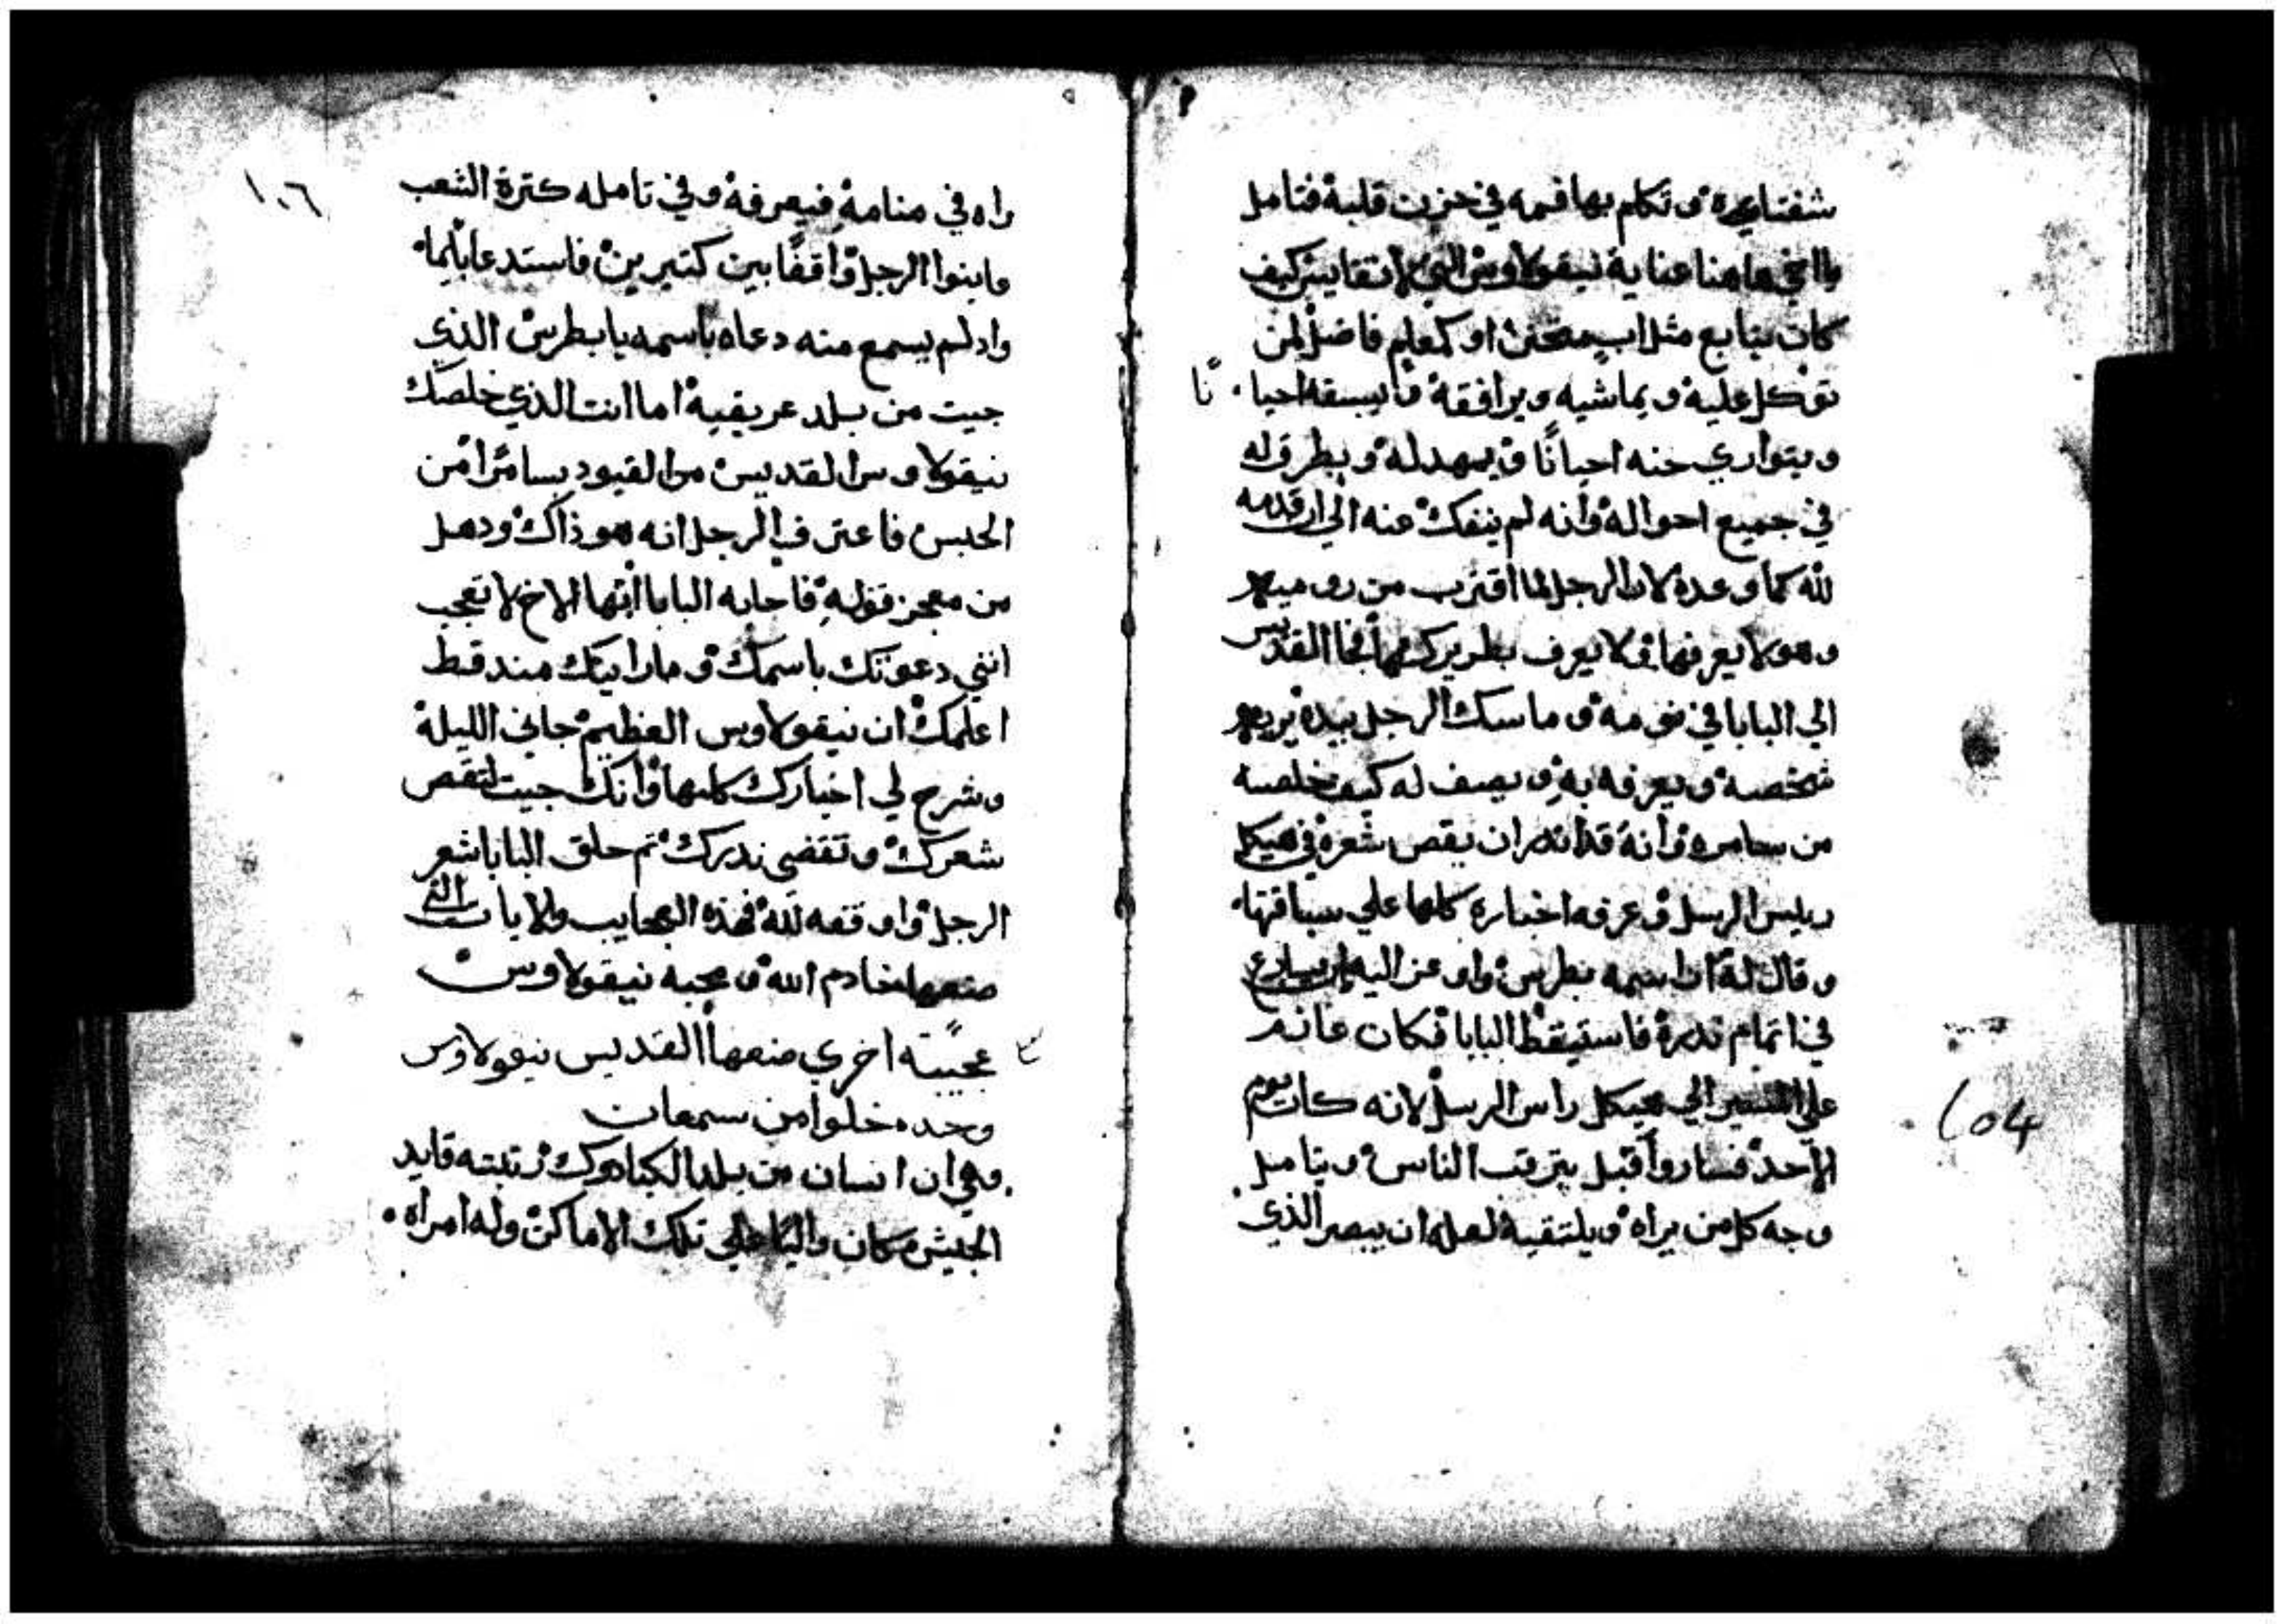 شفتاه وتكلم بها فمه في حزن قلبه فتامل
يا اخي هاهنا عناية نيقولاوس التي لا تقايس كيف
كان يتابع مثل اب متحنن او كمعلم فاضل لمن
توكل عليه ويماشيه ويرافقه ويسبقه احيانًا
ويتواري عنه احيانًا ويمهد له ويطرق له
في جميع احواله وانه لم ينفك عنه الي ان قدمه
لله كما وعده لان الرجل لما اقترب من روميه
وهو لا يعرفها ولا يعرف بطريركها جا القديس
الي البابا في نومه وماسك الرجل بيده يريه
شخصه ويعرفه به ويصف له كيف خلصه
من سامره وانه قد اندر ان يقص شعره في هيكل
رييس الرسل وعرفه اخباره كلها علي سياقتها
وقال له ان اسمه بطرس واوعز اليه ان يسارع
في اتمام ندره فاستيقظ البابا فكان عازم
علي المسير الي هيكل راس الرسل لانه كان يوم
الاحد فسار واقبل يترقب الناس ويتامل
وجه كل من يراه ويلتقيه لعله ان يبصر الذي
١٠٦
راه في منامه فيعرفه وفي تامله كترة الشعب
عاينوا الرجل واقفًا بين كتيرين فاستدعا بايما
واد لم يسمع منه دعاه باسمه يا بطرس الذي
جيت من بلد عريقيه اما انت الذي خلصك
نيقولاوس القديس من القيود بسامرا من
الحبس فاعترف الرجل انه هو ذاك ودهل
من معجز قوله فاجابه البابا ايها الاخ لا تعجب
انني دعوتك باسمك وما رايتك مند قط
اعلمك ان نيقولاوس العظيم جاني الليلة
وشرح لي اخبارك كلها وانك جيت لتقص
شعرك وتقضي ندرك تم حلق البابا شعر
الرجل واوقفه لله فهذه العجايب والايات التي
صنعها خادم الله ومحبه نيقولاوس
عجيبته اخري صنعها القديس نيقولاوس
وحده خلوا من سمعان
وهي ان انسان من بلد الكبادوك رتبته قايد
الجيش وكان واليًا علي تلك الاماكن وله امراه